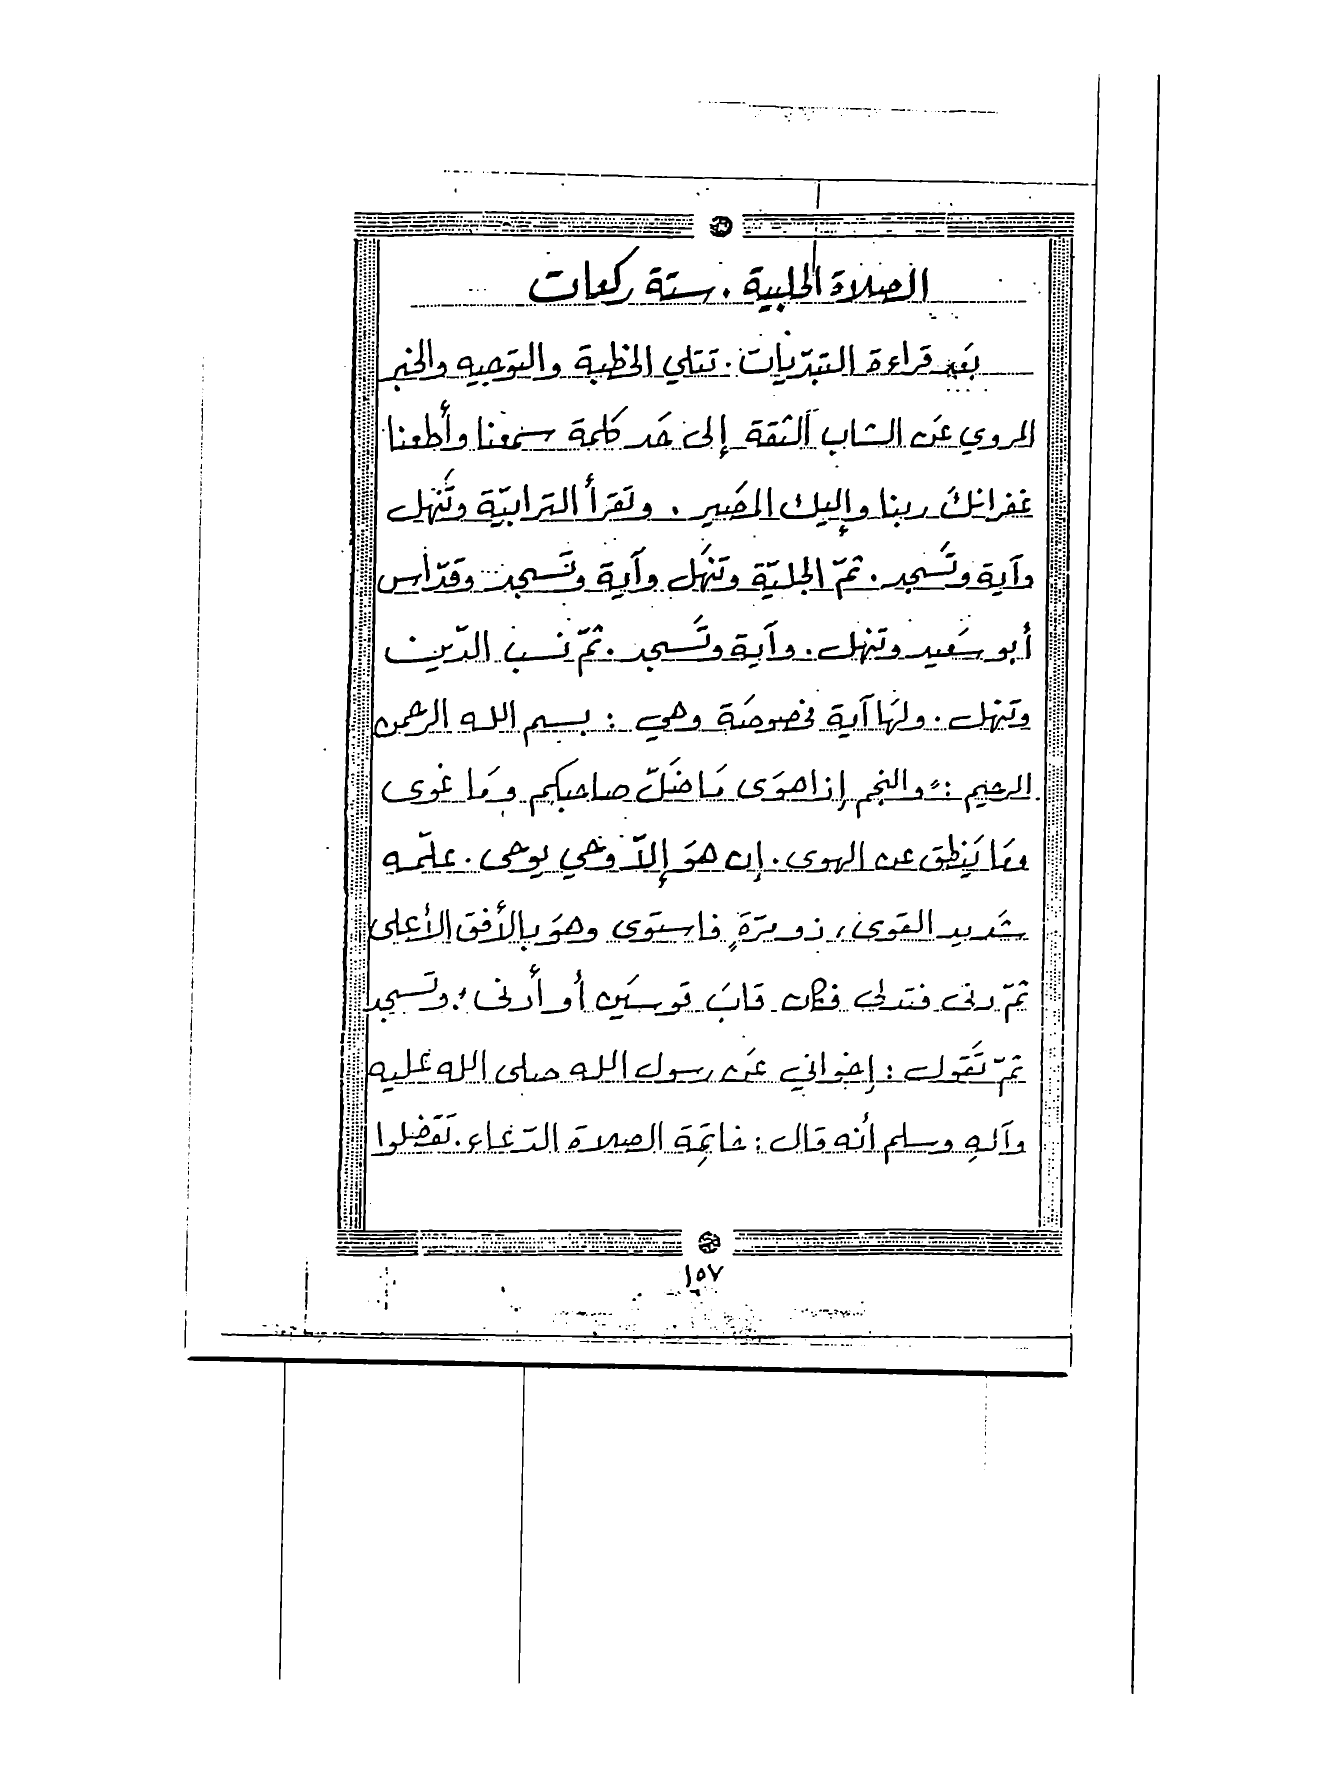 الصلاة الحلبية . ستة ركعات
بَعد قراءة التبرّيات . تتلي الخطبة والتوجيه والخبر
المروي عَن الشاب الثقة إلى حَد كلمة سَمعنا وأطعنا
غفرانكَ ربنا وإليك المصَير . وتقرأ الترابيّة وتَنهل
وآية وتَسجد . ثمّ الجليّة وتَنهَل وآية وتَسجد وقدّاس
أبو سَعيد وتَنهل . وآية وتَسجد . ثمّ نسب الدّين
وتَنهل . ولهَا آية مخصوصَة وهي : بسم الله الرحمن
الرحيم : " والنجم إذا هوَى مَا ضَلّ صاحبكم ومَا غوى
ومَا يَنطق عن الهوى . إن هوَ إلاّ وحَي يوحى . علّمه
شَديد القوى ، ذو مرّةَ فاستوَى وهوَ بالأفق الأعلى
ثمّ دنى فتدلى فكان قابَ قوسَين أو أدنى " . وتَسجد
ثمّ تَقول : إخواني عَن رسول الله صلى الله عَليه
وآلهِ وسلم أنه قال : خاتِمة الصلاة الدّعَاء . تَفَضلوا
١٥٧